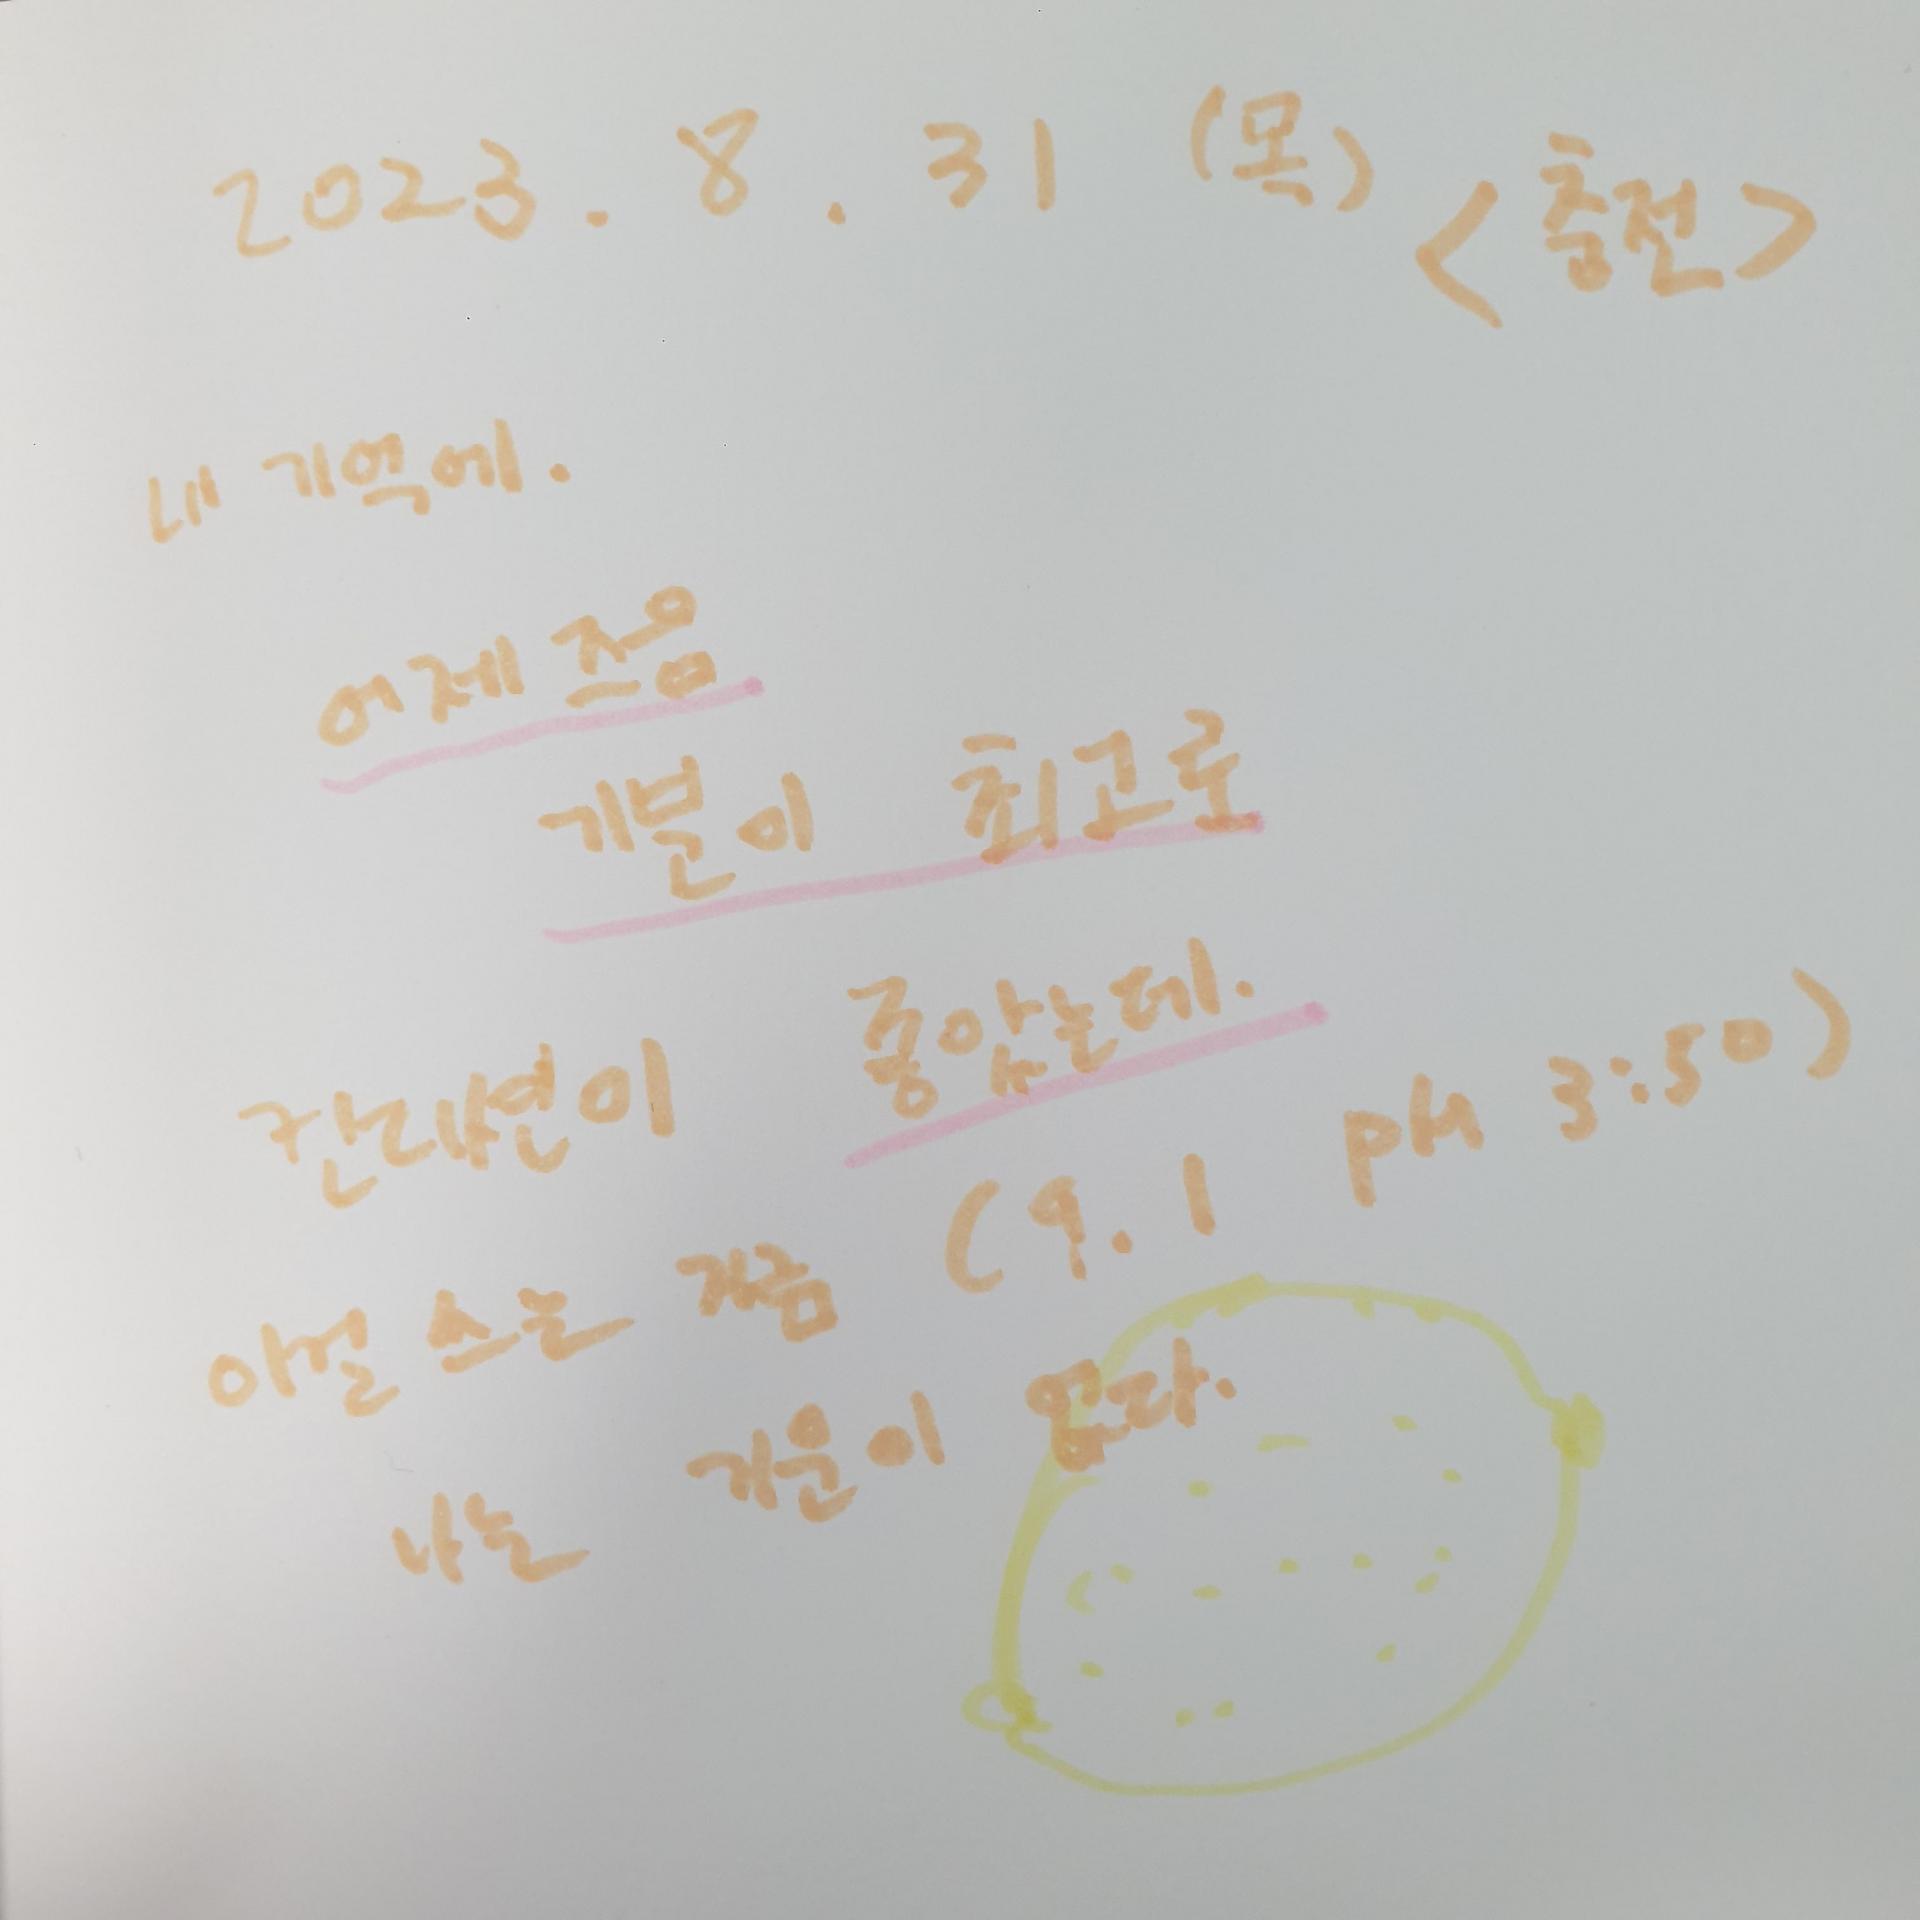 2023. 8. 31 (목) <충전>
내 기억에.
어제 즈음
기분이 최고로
좋았는데.
이걸 쓰는 지금 (9.1 pM 3:50)
나는 기운이 없다.